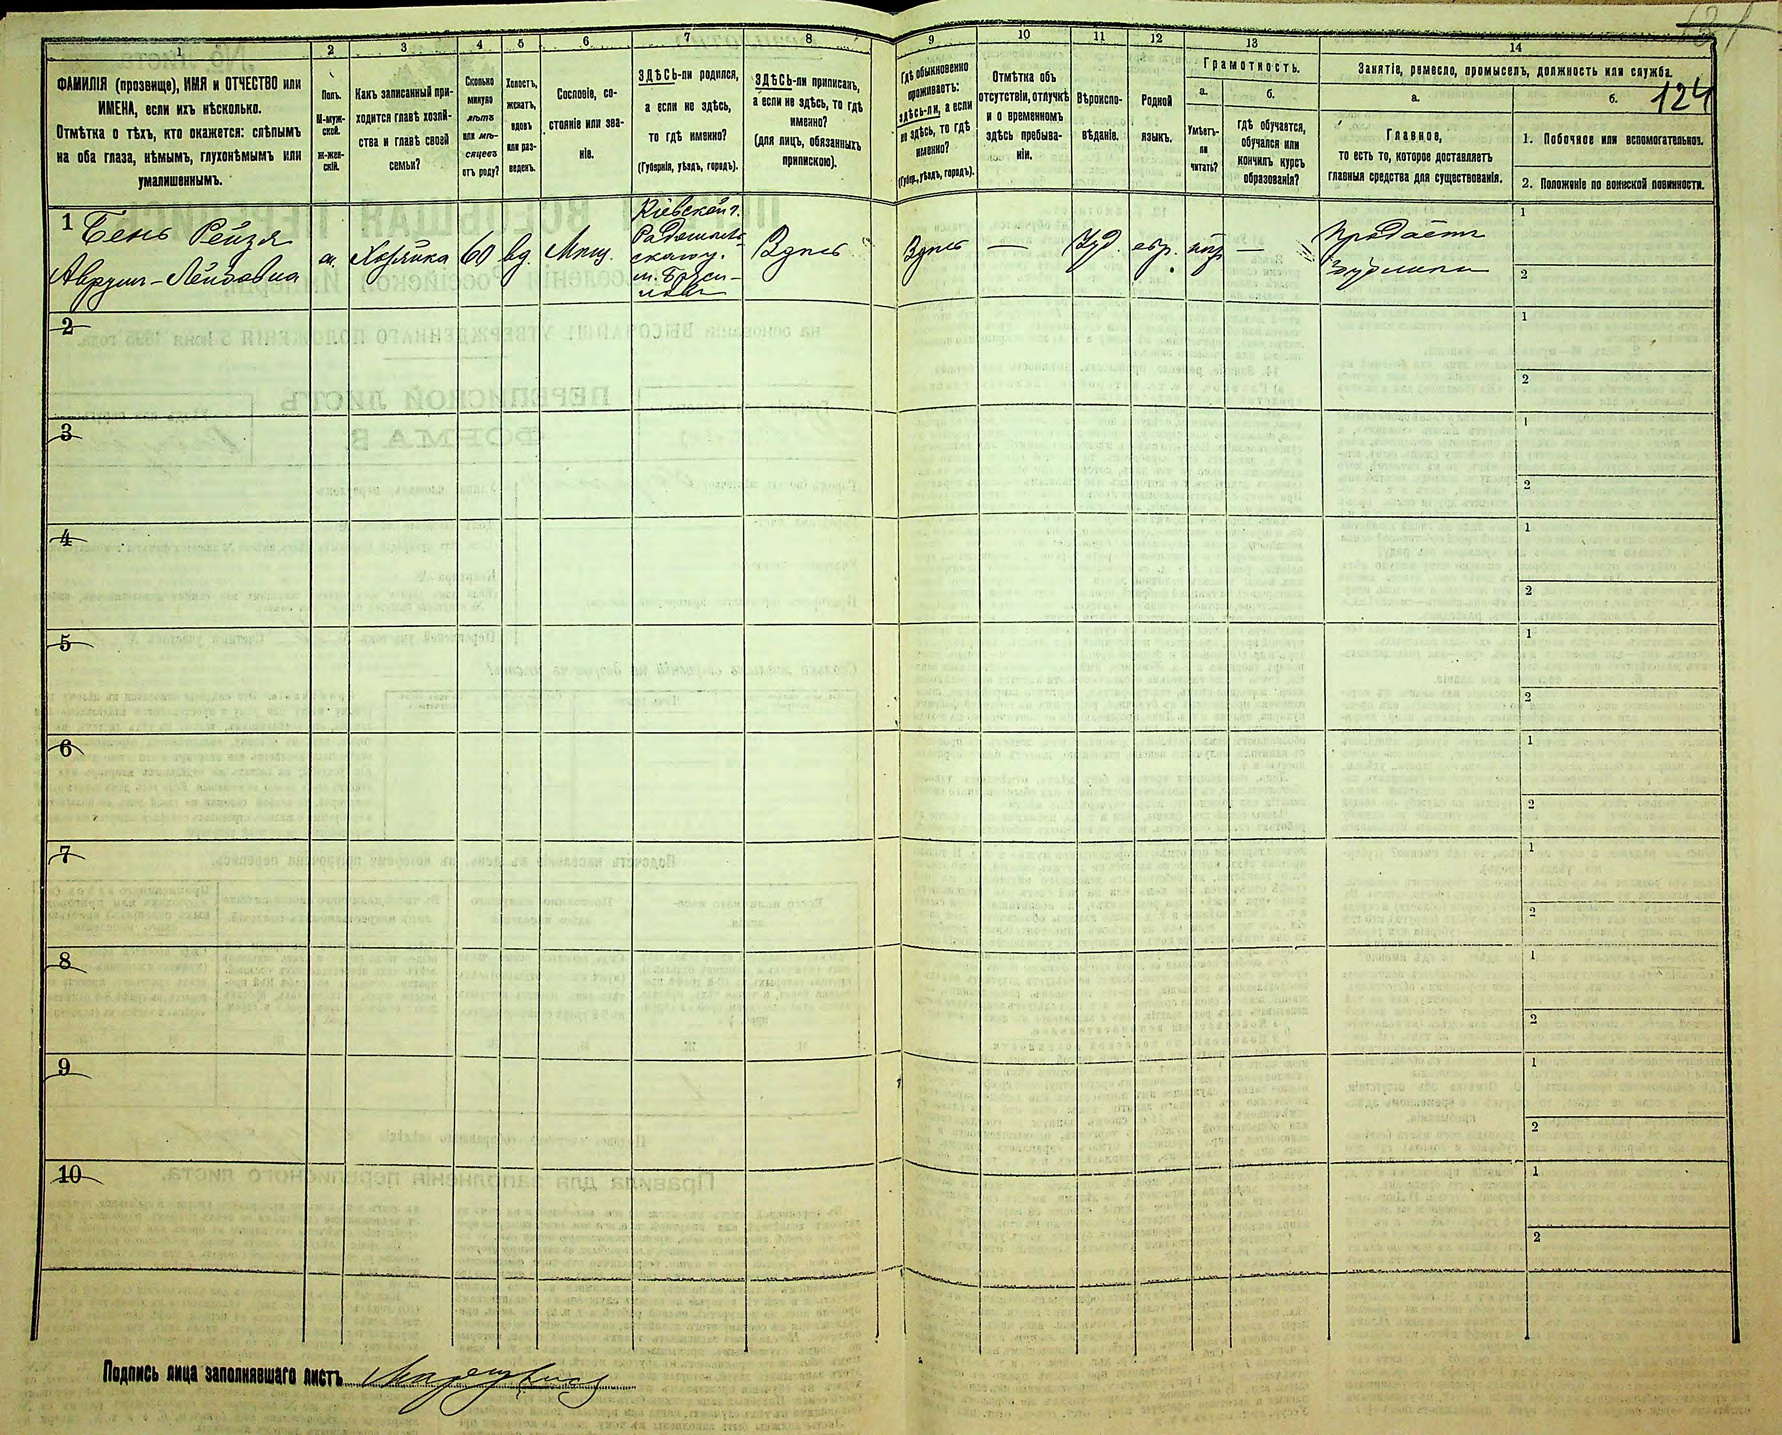 1 2 3 4 5 6 7 8 9 10 11 12 13 14
ФАМИЛІЯ (прозвище), ИМЯ и ОТЧЕСТВО или
ИМЕНА, если ихъ нѣсколько.
Отмѣтка о тѣхъ, кто окажется: слѣпымъ
на оба глаза, нѣмымъ, глухонѣмымъ или
умалишеннымъ.
Полъ.
М-муж-
ской.
Ж-жен-
скій.
Какъ записанный при-
ходится главѣ хозяй-
ства и главѣ своей
семьи?
Сколько
минуло
лѣтъ
или мѣ-
сяцевъ
отъ роду?
Холостъ,
женатъ,
вдовъ
или раз-
веденъ.
Сословіе, со-
стояніе или зва-
ніе.
ЗДѢСЬ-ли родился,
а если не здѣсь,
то гдѣ именно?
(Губернія, уѣздъ, городъ).
ЗДѢСЬ-ли приписанъ,
а если не здѣсь, то гдѣ
именно?
(для лицъ, обязанныхъ
припискою).
Гдѣ обыкновенно
проживаетъ:
здѣсь-ли, а если
не здѣсь, то гдѣ
именно?
(Губер., уѣздъ, городъ).
Отмѣтка объ
отсутствіи, отлучкѣ
и о временномъ
здѣсь пребыва-
ніи.
Вѣроиспо-
вѣданіе.
Родной
языкъ.
Грамотность.
а.
Умѣетъ-
ли
читать?
б.
гдѣ обучается,
обучался или
кончилъ курсъ
образованія?
Занятіе, ремесло, промыселъ, должность или служба.
а.
Главное,
то есть то, которое доставляетъ
главныя средства для существованія.
б. 124
1. Побочное или вспомогательное.
2. Положеніе по воинской повинности.
1 Бень Рейзя
Аврум-Лейбовна
ж. Хозяйка 60 вд. Мѣщ.
Кіевской г.
Радомысль-
скаго у.
м. Бруси-
ловъ
Здѣсь Здѣсь — Іуд. евр. —
Продаетъ
1
2
2
1
2
3
1
2
4
1
2
5
1
2
6
1
2
7
1
2
8
1
2
9
1
2
10
1
2
Подпись лица заполнявшаго листъ